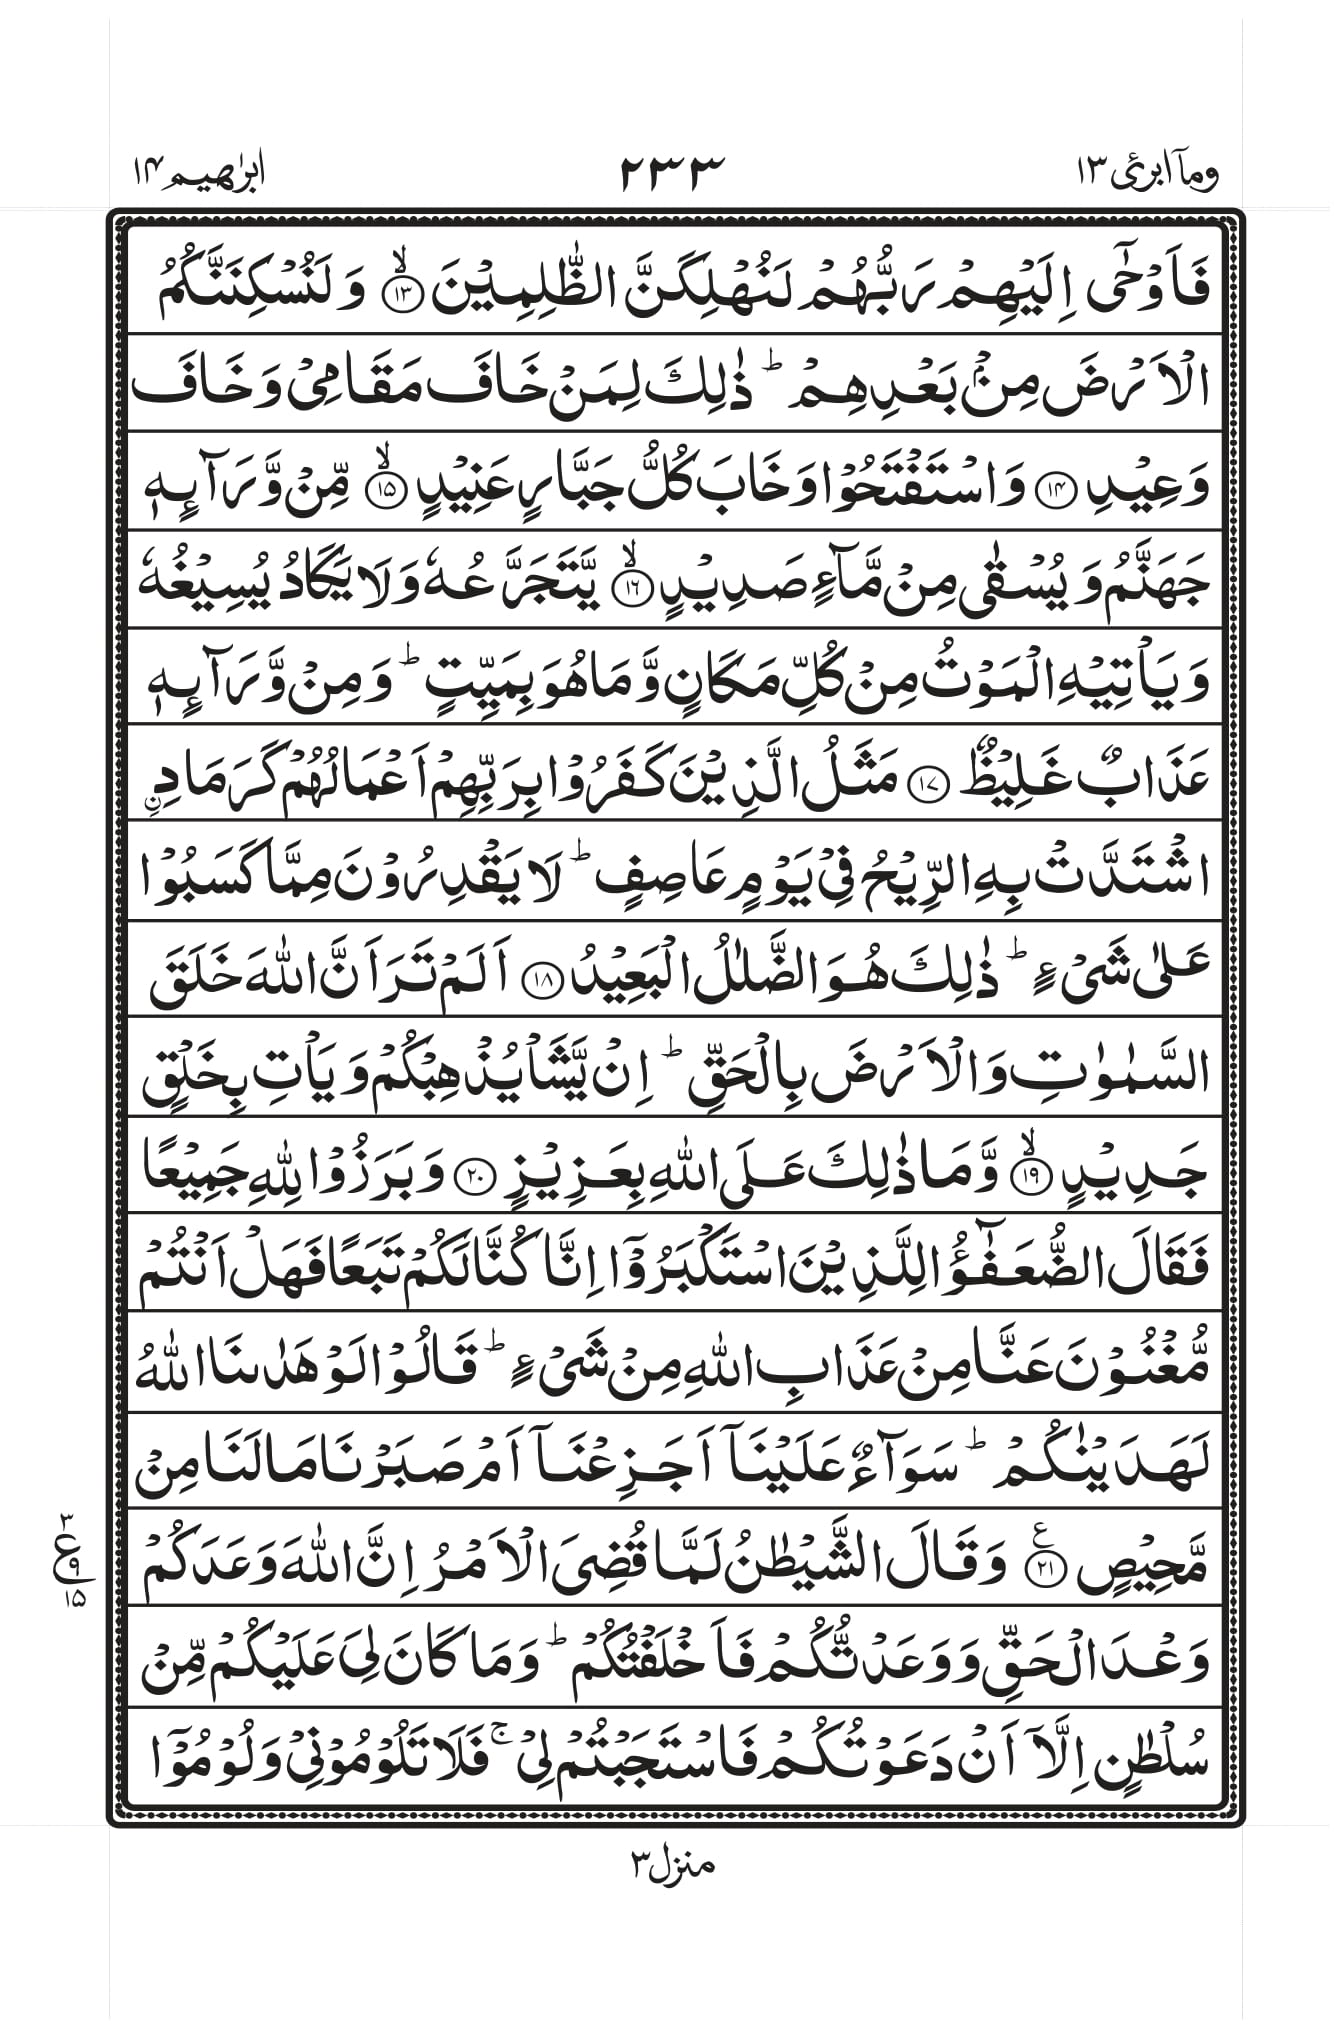 ومآ ابرئ ١٣
٢٣٣
ابرٰهيم ١٤
فَاَوْحٰۤى اِلَيْهِمْ رَبُّهُمْ لَنُهْلِكَنَّ الظّٰلِمِيْنَ ۙ‏﴿١٣﴾ وَ لَنُسْكِنَنَّكُمُ
الْاَرْضَ مِنْۢ بَعْدِهِمْ ؕ ذٰلِكَ لِمَنْ خَافَ مَقَامِىْ وَ خَافَ
وَعِيْدِ ﴿١٤﴾ وَاسْتَفْتَحُوْا وَ خَابَ كُلُّ جَبَّارٍ عَنِيْدٍ ۙ‏﴿١٥﴾ مِّنْ وَّرَآٮِٕهٖ
جَهَنَّمُ وَ يُسْقٰى مِنْ مَّآءٍ صَدِيْدٍ ۙ‏﴿١٦﴾ يَّتَجَرَّعُهٗ وَلَا يَكَادُ يُسِيْغُهٗ
وَيَاْتِيْهِ الْمَوْتُ مِنْ كُلِّ مَكَانٍ وَّمَا هُوَ بِمَيِّتٍ ؕ وَمِنْ وَّرَآٮِٕهٖ
عَذَابٌ غَلِيْظٌ ﴿١٧﴾ مَثَلُ الَّذِيْنَ كَفَرُوْا بِرَبِّهِمْ اَعْمَالُهُمْ كَرَمَادِ ۨ
اشْتَدَّتْ بِهِ الرِّيْحُ فِىْ يَوْمٍ عَاصِفٍ ؕ لَا يَقْدِرُوْنَ مِمَّا كَسَبُوْا
عَلٰى شَىْءٍ ؕ ذٰلِكَ هُوَ الضَّلٰلُ الْبَعِيْدُ ﴿١٨﴾ اَلَمْ تَرَ اَنَّ اللّٰهَ خَلَقَ
السَّمٰوٰتِ وَالْاَرْضَ بِالْحَقِّ ؕ اِنْ يَّشَاْ يُذْهِبْكُمْ وَيَاْتِ بِخَلْقٍ
جَدِيْدٍ ۙ‏﴿١٩﴾ وَّمَا ذٰلِكَ عَلَى اللّٰهِ بِعَزِيْزٍ ﴿٢٠﴾ وَبَرَزُوْا لِلّٰهِ جَمِيْعًا
فَقَالَ الضُّعَفٰٓؤُا لِلَّذِيْنَ اسْتَكْبَرُوْۤا اِنَّا كُنَّا لَكُمْ تَبَعًا فَهَلْ اَنْتُمْ
مُّغْنُوْنَ عَنَّا مِنْ عَذَابِ اللّٰهِ مِنْ شَىْءٍ ؕ قَالُوْا لَوْ هَدٰٮنَا اللّٰهُ
لَهَدَيْنٰكُمْ ؕ سَوَآءٌ عَلَيْنَاۤ اَجَزِعْنَاۤ اَمْ صَبَرْنَا مَا لَنَا مِنْ
مَّحِيْصٍ ﴿٢١﴾ ع وَقَالَ الشَّيْطٰنُ لَمَّا قُضِىَ الْاَمْرُ اِنَّ اللّٰهَ وَعَدَكُمْ
٣
ع
٩
١٥
وَعْدَ الْحَقِّ وَوَعَدْتُّكُمْ فَاَخْلَفْتُكُمْ ؕ وَمَا كَانَ لِىَ عَلَيْكُمْ مِّنْ
سُلْطٰنٍ اِلَّاۤ اَنْ دَعَوْتُكُمْ فَاسْتَجَبْتُمْ لِىْ ۚ فَلَا تَلُوْمُوْنِىْ وَلُوْمُوْۤا
منزل ٣